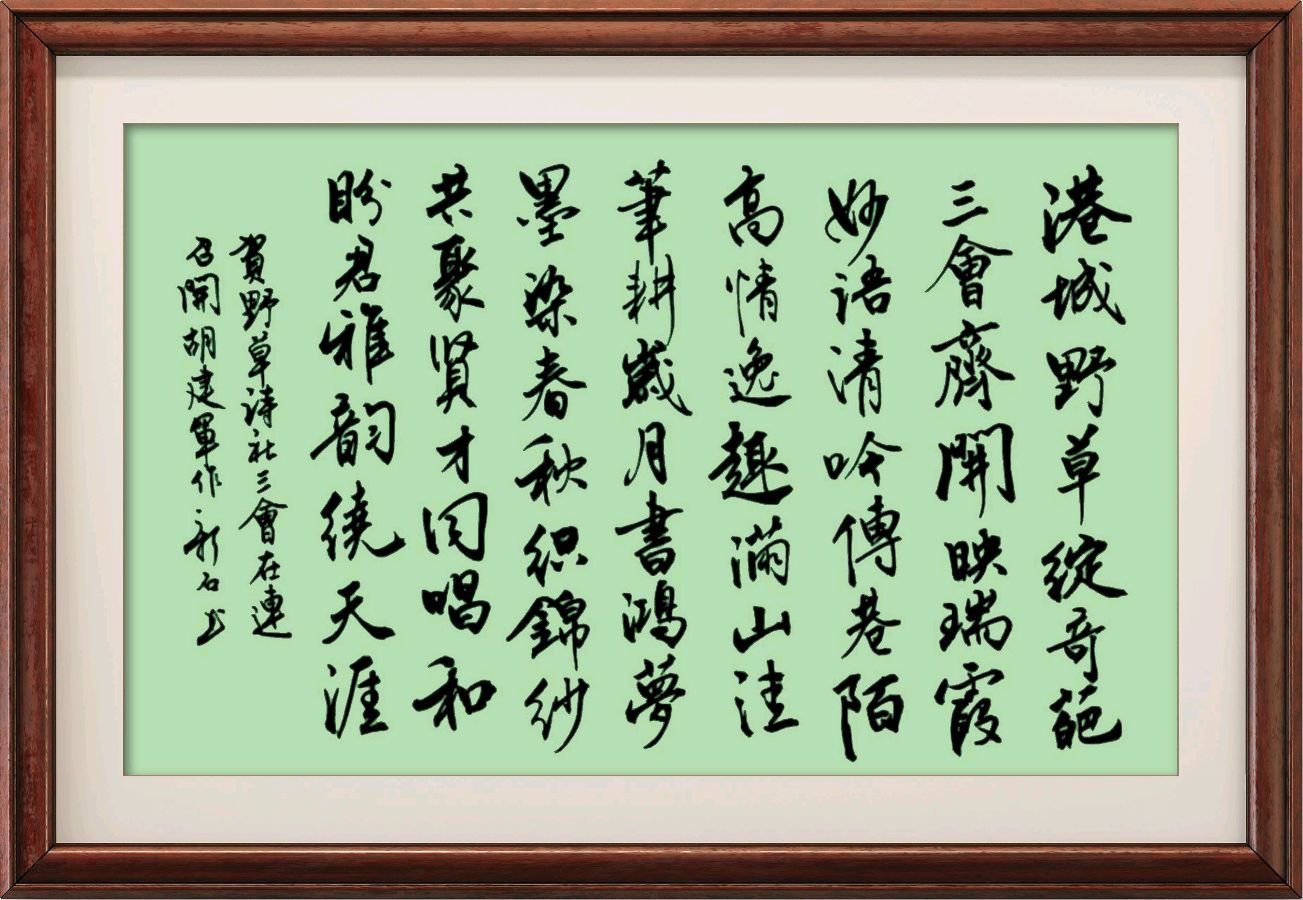 港城野草綻奇葩
三會齊開映瑞霞
妙語清吟傳巷陌
高情逸趣滿山洼
筆耕歲月書鴻夢
墨染春秋織錦紗
共聚賢才同唱和
盼君雅韵繞天涯
賀野草詩社三會在連
召開胡建軍作新石書